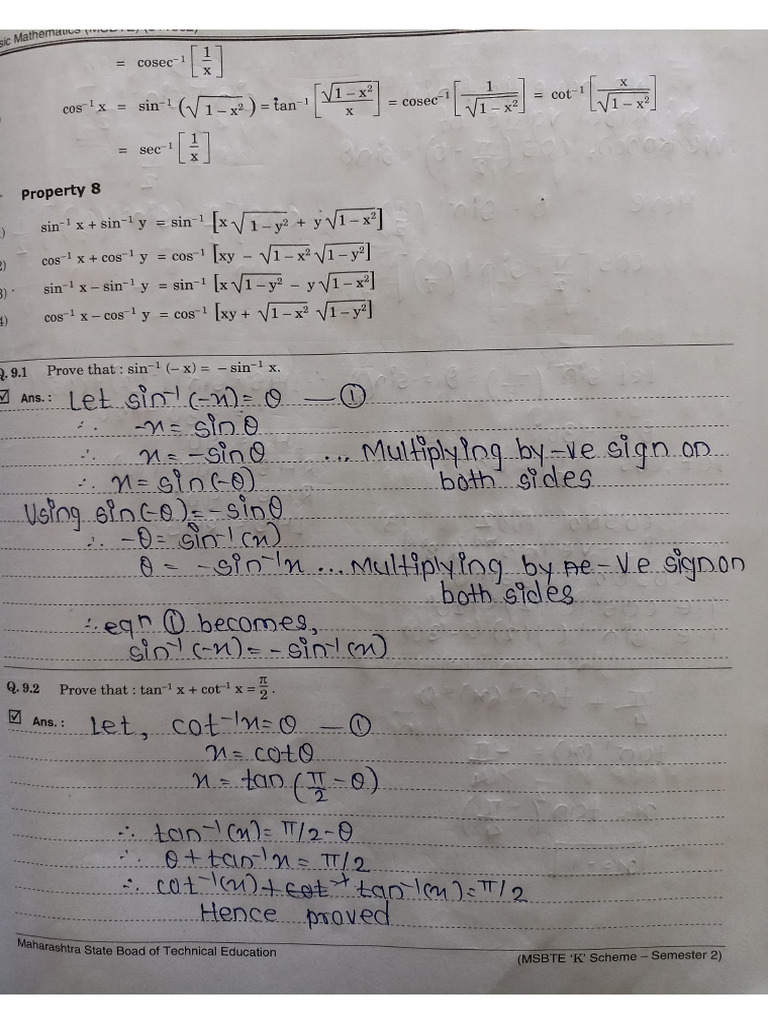 sic Mathematics (MSBTE)
= cosec⁻¹ [1/x]
cos⁻¹ x = sin⁻¹ (√(1 – x²)) = tan⁻¹ [√(1 – x²)/x] = cosec⁻¹ [1/√(1 – x²)] = cot⁻¹ [x/√(1 – x²)]
= sec⁻¹ [1/x]
Property 8
1) sin⁻¹ x + sin⁻¹ y = sin⁻¹ [x√(1 – y²) + y√(1 – x²)]
2) cos⁻¹ x + cos⁻¹ y = cos⁻¹ [xy – √(1 – x²) √(1 – y²)]
3) sin⁻¹ x – sin⁻¹ y = sin⁻¹ [x√(1 – y²) – y√(1 – x²)]
4) cos⁻¹ x – cos⁻¹ y = cos⁻¹ [xy + √(1 – x²) √(1 – y²)]
Q. 9.1 Prove that : sin⁻¹ (– x) = – sin⁻¹ x.
☑ Ans. : Let sin⁻¹(-x) = θ — ①
∴ -x = sinθ
∴ x = -sinθ ... Multiplying by -ve sign on
∴ x = sin(-θ) both sides
Using sin(-θ) = -sinθ
∴ -θ = sin⁻¹(x)
θ = -sin⁻¹x ... Multiplying by -Ve sign on
both sides
∴ eqn ① becomes,
sin⁻¹(-x) = -sin⁻¹(x)
Q. 9.2 Prove that : tan⁻¹ x + cot⁻¹ x = π/2 .
☑ Ans. : Let, cot⁻¹x = θ — ①
x = cotθ
x = tan(π/2 - θ)
∴ tan⁻¹(x) = π/2 - θ
∴ θ + tan⁻¹x = π/2
∴ cot⁻¹(x) + tan⁻¹(x) = π/2
Hence proved
Maharashtra State Boad of Technical Education
(MSBTE 'K' Scheme – Semester 2)